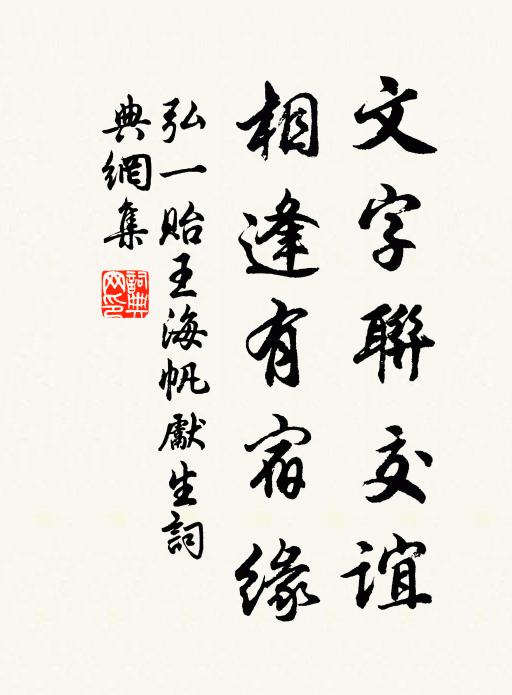 文字聯交誼
相逢有宿緣
弘一貽王海帆獻生詞
典網集
詞典網印